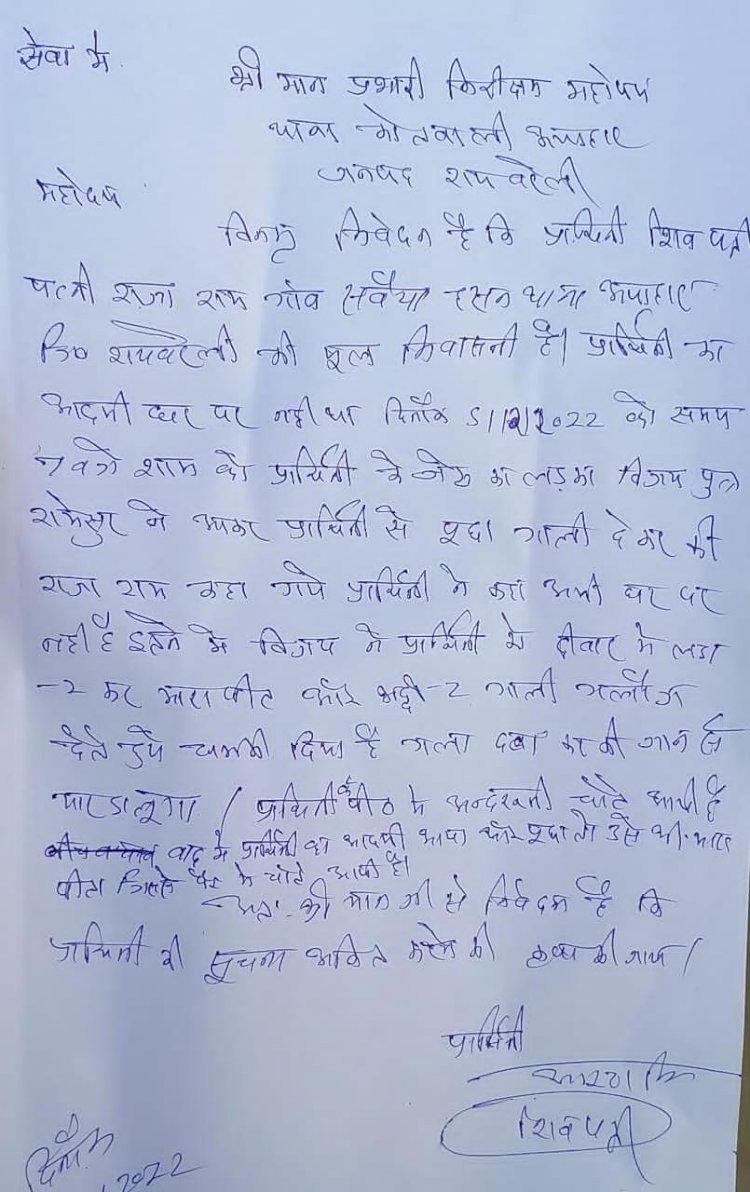 सेवा में
श्री मान प्रभारी निरीक्षक महोदय
थाना कोतवाली ऊंचाहार
जनपद रायबरेली
महोदय
विनम्र निवेदन है कि प्रार्थिनी शिव पत्नी
पत्नी राजा राम गाँव सवैया हसन थाना ऊंचाहार
जि0 रायबरेली की मूल निवासनी है। प्रार्थिनी का
आदमी घर पर नही था दिनाँक 2022 को समय
बजे शाम को प्रार्थिनी के जेठ का लड़का विजय पुत्र
रामेसुर ने आकर प्रार्थिनी से पूछा गाली देकर की
राजा राम कहा गये प्रार्थिनी ने कहा अभी घर पर
नही है इतने मे विजय ने प्रार्थिनी को दीवार मे लड़ा
-2 कर मारा पीट और भद्दी-2 गाली गलौज
देते हुये धमकी दिया है गला दबा कर की जान से
मार डालूगा / प्रार्थिनी के पीठ मे अन्दरूनी चोटे आयी है
बाद मे प्रार्थिनी का आदमी आया और पूछा तो उसे भी मारा
पीटा जिससे पैर मे चोटे आयी है।
अतः श्री मान जी से निवेदन है कि
प्रार्थिनी की सूचना अंकित करने की कृपा की जाय /
प्रार्थिनी
शिव पत्नी
दिनाँक
2022